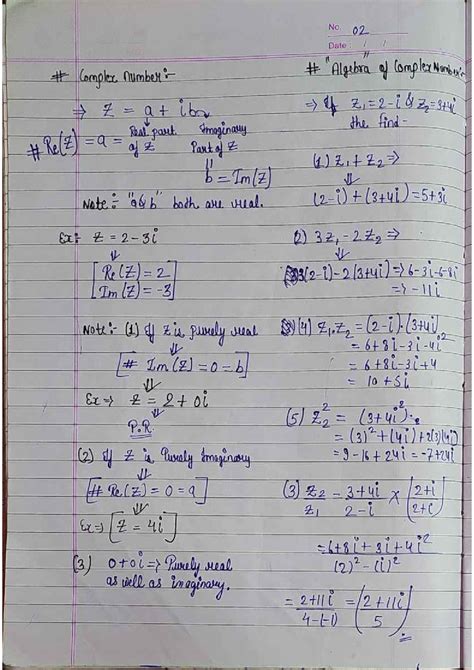 No. 02
Date / /
# Complex Number:-
⇒ Z = a + ib
# Re(Z) = a = Real part of Z
Imaginary Part of Z
⇓
b = Im(Z)
Note:- "a & b" both are real.
Ex:- Z = 2-3i
⇓
[Re(Z) = 2
Im(Z) = -3]
Note:- (1) If Z is purely real
⇓
[# Im(Z) = 0 = b]
Ex ⇒ Z = 2 + 0i
⇓
P.R.
(2) If Z is Purely Imaginary
⇓
[# Re(Z) = 0 = a]
Ex ⇒ [Z = 4i]
(3) 0+0i ⇒ Purely real
as well as imaginary.
# "Algebra" of Complex Number:-
⇒ If Z₁ = 2-i & Z₂ = 3+4i
the find-
(1) Z₁ + Z₂ ⇒
⇓
(2-i) + (3+4i) = 5+3i
(2) 3Z₁ - 2Z₂ ⇒
⇓
3(2-i) - 2(3+4i) ⇒ 6-3i-6-8i
⇒ -11i
(4) Z₁.Z₂ = (2-i).(3+4i)
= 6+8i-3i-4i²
= 6+8i-3i+4
= 10+5i
(5) Z₂² = (3+4i)²
= (3)² + (4i) + 2(3)(4i)
= 9-16+24i = -7+24i
(3) Z₂/Z₁ = (3+4i)/(2-i) × ((2+i)/(2+i))
= (6+8i+3i+4i²)/((2)²-(i)²)
= (2+11i)/(4-(-1)) = ((2+11i)/5)